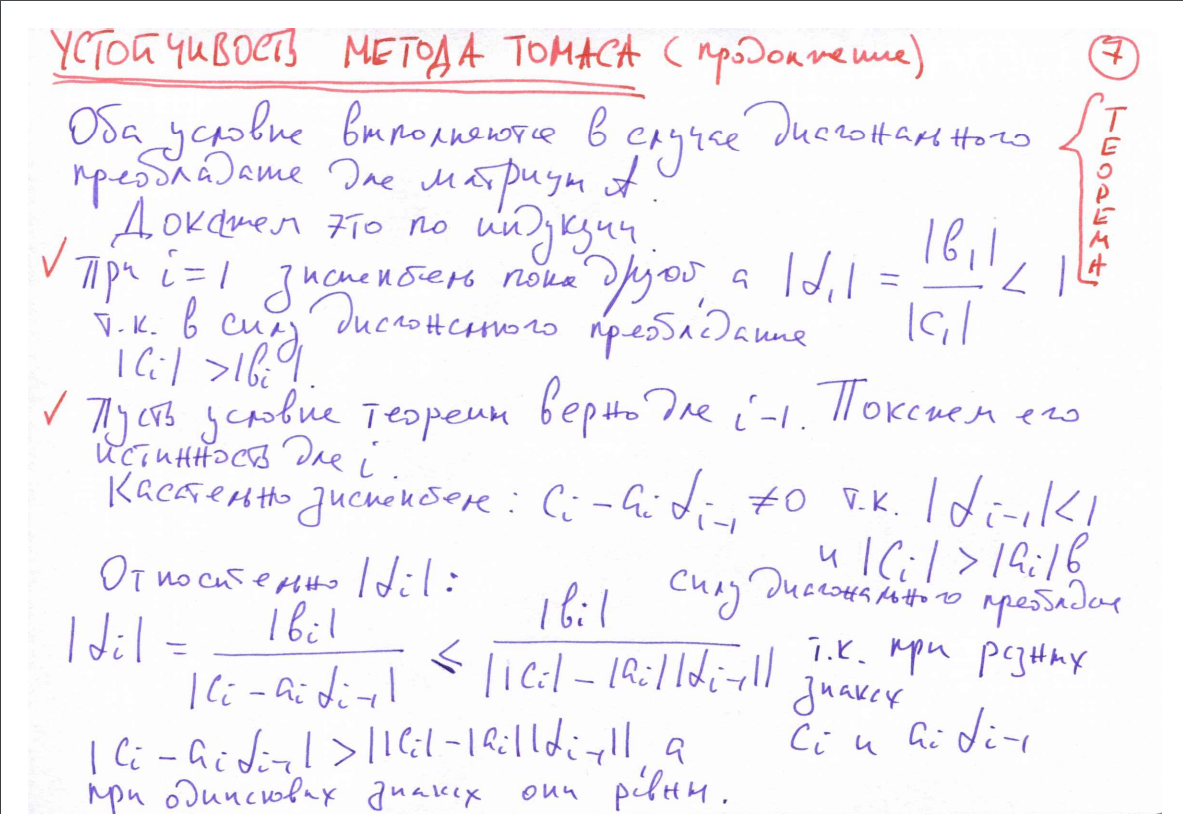 УСТОЙЧИВОСТЬ МЕТОДА ТОМАСА (продолжение) 7
Оба условия выполняются в случае диагонального
преобладания для матрицы A.
ТЕОРЕМА
Докажем это по индукции.
✓ При i=1 знаменатель пока другой, а |α₁| = |b₁| / |c₁| < 1
т.к. в силу диагонального преобладания
|cᵢ| > |bᵢ|.
✓ Пусть условие теоремы верно для i-1. Покажем его
истинность для i.
Касательно знаменателя: cᵢ - aᵢ αᵢ₋₁ ≠ 0 т.к. |αᵢ₋₁| < 1
и |cᵢ| > |aᵢ| в
силу диагонального преобладания
Относительно |αᵢ|:
|αᵢ| = |bᵢ| / |cᵢ - aᵢ αᵢ₋₁| ≤ |bᵢ| / ||cᵢ| - |aᵢ||αᵢ₋₁|| т.к. при разных
знаках
cᵢ и aᵢ αᵢ₋₁
|cᵢ - aᵢ αᵢ₋₁| > ||cᵢ| - |aᵢ||αᵢ₋₁||, а
при одинаковых знаках они равны.